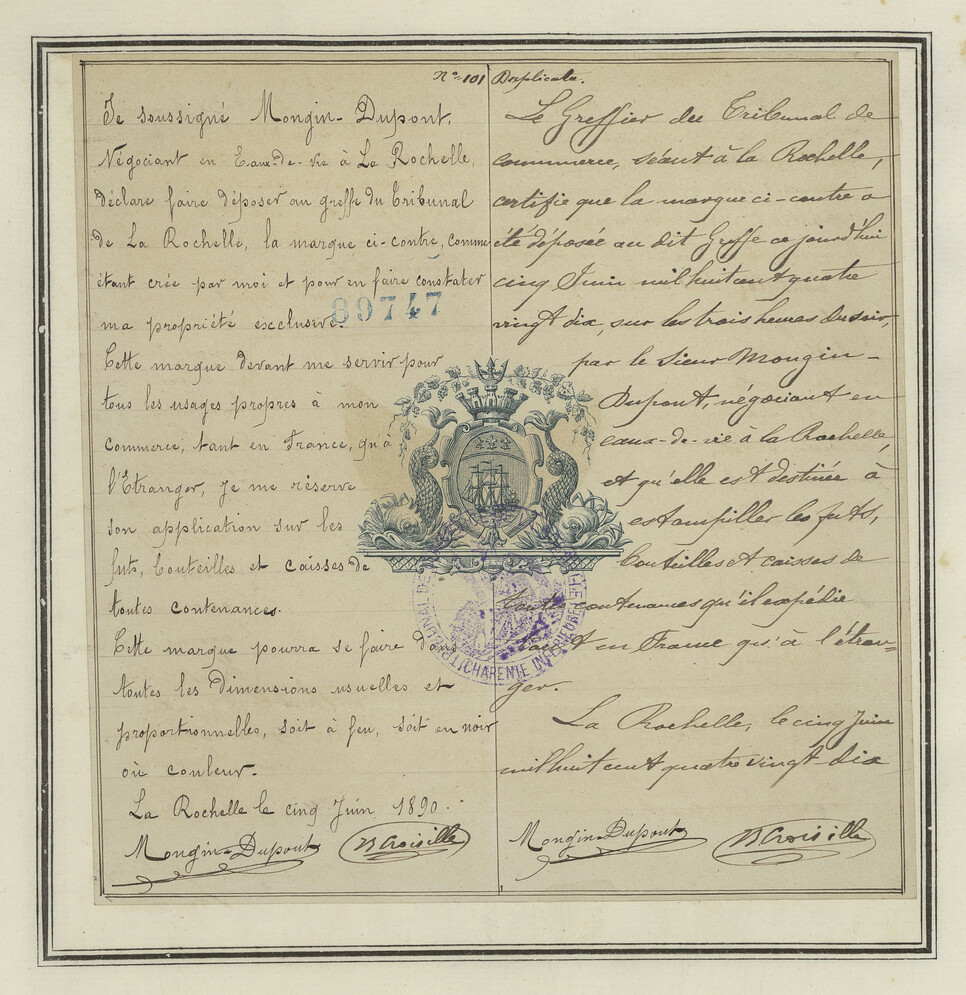 No 101 Duplicata.
Je soussigné Mongin-Dupont,
Négociant en Eaux-de-vie à La Rochelle,
déclare faire déposer au greffe du Tribunal
de La Rochelle, la marque ci-contre, comme
étant crée par moi et pour en faire constater
ma propriété exclusive.
89747
Cette marque devant me servir pour
tous les usages propres à mon
commerce, tant en France, qu'à
l'Etranger, je me réserve
son application sur les
futs, bouteilles et caisses de
toutes contenances.
Cette marque pourra se faire dans
toutes les dimensions usuelles et
proportionnelles, soit à feu, soit en noir
ou couleur.
La Rochelle le cinq Juin 1890.
Mongin-Dupont
Le Greffier du Tribunal de
commerce, séant à la Rochelle,
certifie que la marque ci-contre a
été déposée au dit Greffe ce jourd'hui
cinq Juin mil huit cent quatre
vingt dix, sur les trois heures du soir,
par le Sieur Mongin-
Dupont, négociant en
eaux-de-vie à la Rochelle,
et qu'elle est destinée à
estampiller les futs,
bouteilles et caisses de
toutes contenances qu'il expédie
tant en France qu'à l'étran-
ger.
La Rochelle, le cinq Juin
mil huit cent quatre vingt-dix
Mongin-Dupont
TRIBUNAL DE
(CHARENTE INFERIEURE)